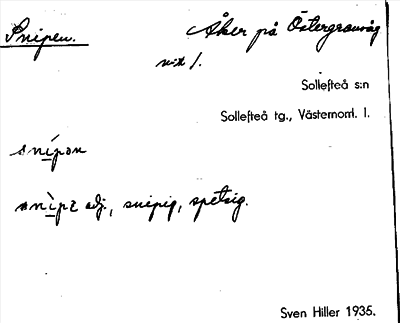 Snipen. Åker på Östergranvåg
n:o 1.
Sollefteå s:n
Sollefteå tg., Västernorrl. l.
snípən
adj., snipig, spetsig.
Sven Hiller 1935.